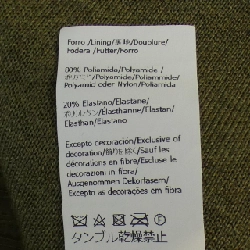 Forro/Lining/裏地/Doublure/
Fodera/Futter/Forro
80% Poliamida/Polyamide/
Polyamide/Poliammide/
Polyamid oder Nylon/Poliamida
20% Elastano/Elastane/
Elasthanne/Elastan/
Elasthan/Elastano
Excepto decoracion/Exclusive of
decoration/飾りを除く/Sauf les
décorations en fibre/Escluse le
decorazioni in fibra/
Ausgenommen Dekorfasern/
Excepto as decorações em fibra
タンブル乾燥禁止